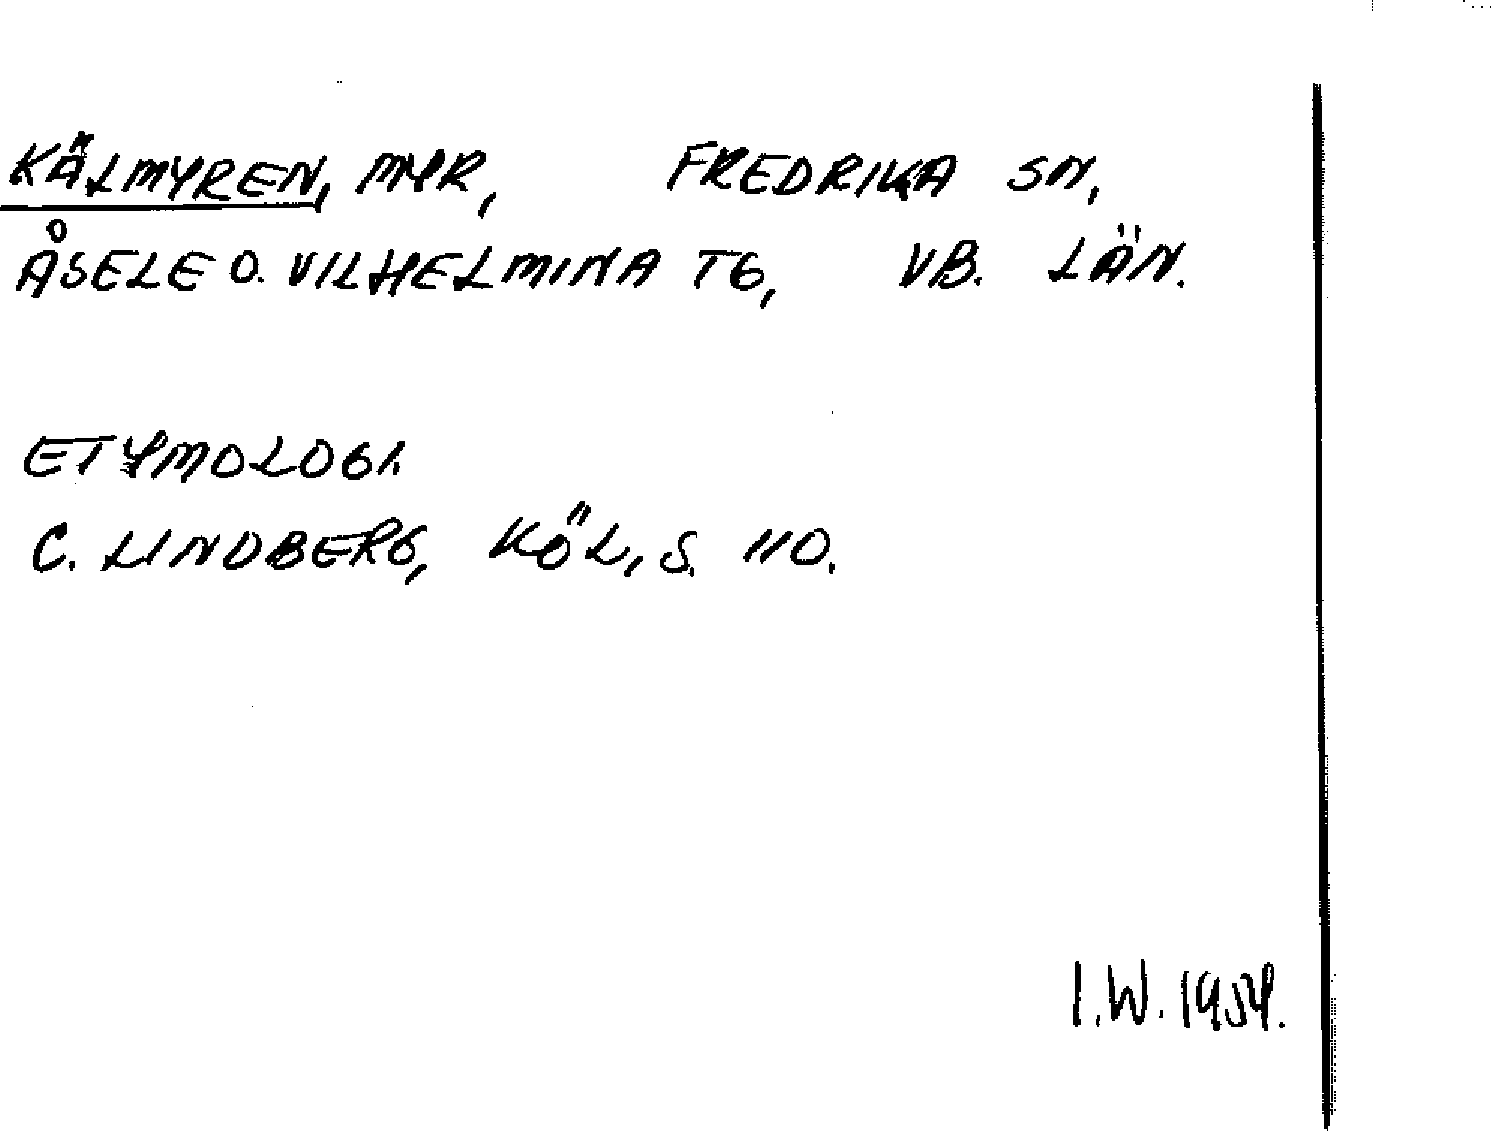 KÄLMYREN, MYR, FREDRIKA SN,
ÅSELE O. VILHELMINA TG, VB. LÄN.
ETYMOLOGI.
C. LINDBERG, KÖL, S. 110.
I.W. 1954.